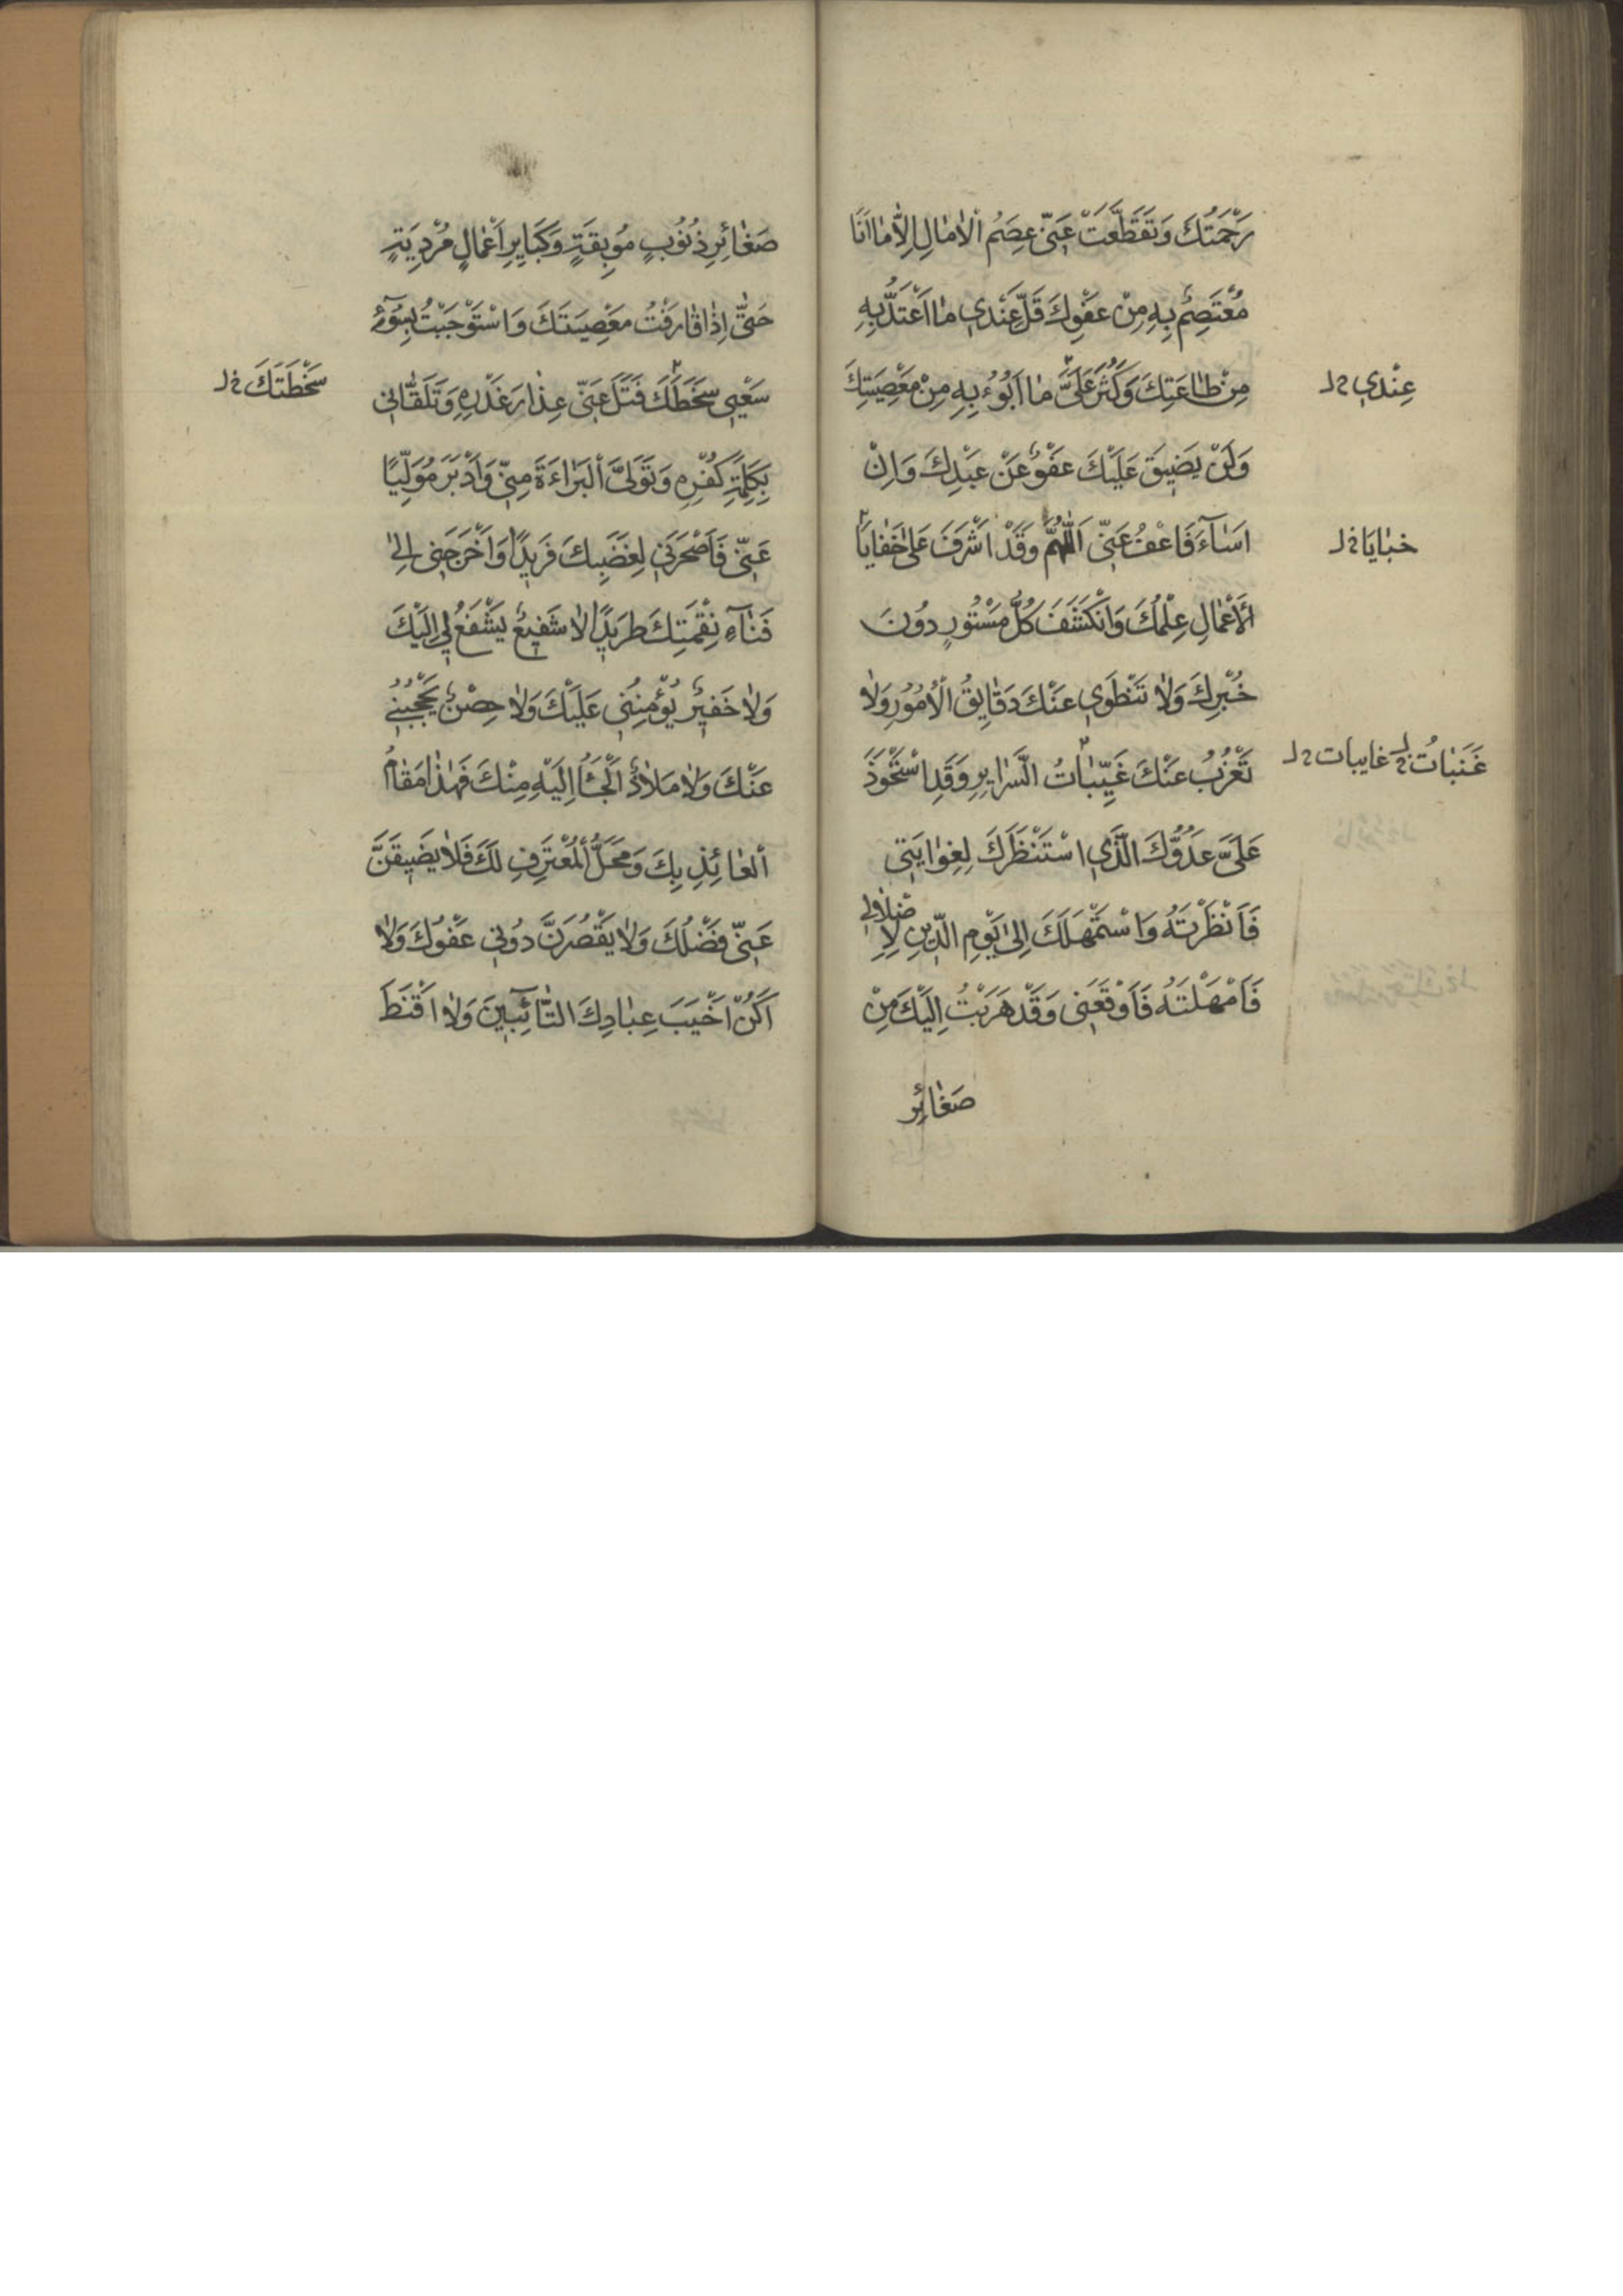 رَحْمَتُكَ وَتَقَطَّعَتْ عَنّي عِصَمُ الْاٰمٰالِ اِلّٰا مٰا اَنَا
مُعْتَصِمٌ بِهِ مِنْ عَفْوِكَ قَلَّ عِنْدي مٰا اَعْتَدُّ بِهِ
مِنْ طٰاعَتِكَ وَكَثُرَ عَلَيَّ مٰا اَبُوءُ بِهِ مِنْ مَعْصِيَتِكَ
عِنْدي خ ل
وَلَنْ يَضيقَ عَلَيْكَ عَفْوٌ عَنْ عَبْدِكَ وَاِنْ
اَسٰآءَ فَاعْفُ عَنّي اَللّٰهُمَّ وَقَدْ اَشْرَفَ عَلىٰ خَفٰايَا
خبٰايَا خ ل
الْاَعْمٰالِ عِلْمُكَ وَانْكَشَفَ كُلُّ مَسْتُورٍ دُونَ
خُبْرِكَ وَلٰا تَنْطَوي عَنْكَ دَقٰايِقُ الْاُمُورِ وَلٰا
تَعْزُبُ عَنْكَ غَيِّبٰاتُ السَّرٰايِرِ وَقَدِ اسْتَحْوَذَ
غَيَبٰاتُ خ ل غايبات خ ل
عَلَيَّ عَدُوُّكَ الَّذي اسْتَنْظَرَكَ لِغِوٰايَتي
فَاَنْظَرْتَهُ وَاسْتَمْهَلَكَ اِلىٰ يَوْمِ الدّينِ لِاِضْلٰالي
فَاَمْهَلْتَهُ فَاَوْقَعَني وَقَدْ هَرَبْتُ اِلَيْكَ مِنْ
صَغٰائِرِ
صَغٰائِرِ ذُنُوبٍ مُوبِقَةٍ وَكَبٰايِرِ اَعْمٰالٍ مُرْدِيَةٍ
حَتّٰى اِذٰا قٰارَفْتُ مَعْصِيَتَكَ وَاسْتَوْجَبْتُ بِسُوٓءِ
سَعْيي سَخَطَكَ فَتَلَ عَنّي عِذٰارَ غَدْرِهِ وَتَلَقّٰاني
سَخْطَتَكَ خ ل
بِكَلِمَةِ كُفْرِهِ وَتَوَلَّى الْبَرٰاءَةَ مِنّي وَاَدْبَرَ مُوَلِّيًا
عَنّي فَاَصْحَرَني لِغَضَبِكَ فَريدًا وَاَخْرَجَني اِلىٰ
فَنٰآءِ نِقْمَتِكَ طَريدًا لٰا شَفيعٌ يَشْفَعُ لي اِلَيْكَ
وَلٰا خَفيرٌ يُؤْمِنُني عَلَيْكَ وَلٰا حِصْنٌ يَحْجُبُني
عَنْكَ وَلٰا مَلٰاذٌ اَلْجَأُ اِلَيْهِ مِنْكَ فَهٰذٰا مَقٰامُ
الْعٰائِذِ بِكَ وَمَحَلُّ الْمُعْتَرِفِ لَكَ فَلٰا يَضيقَنَّ
عَنّي فَضْلُكَ وَلٰا يَقْصُرَنَّ دُوني عَفْوُكَ وَلٰا
اَكُنْ اَخْيَبَ عِبٰادِكَ التّٰآئِبينَ وَلٰا اَقْنَطَ